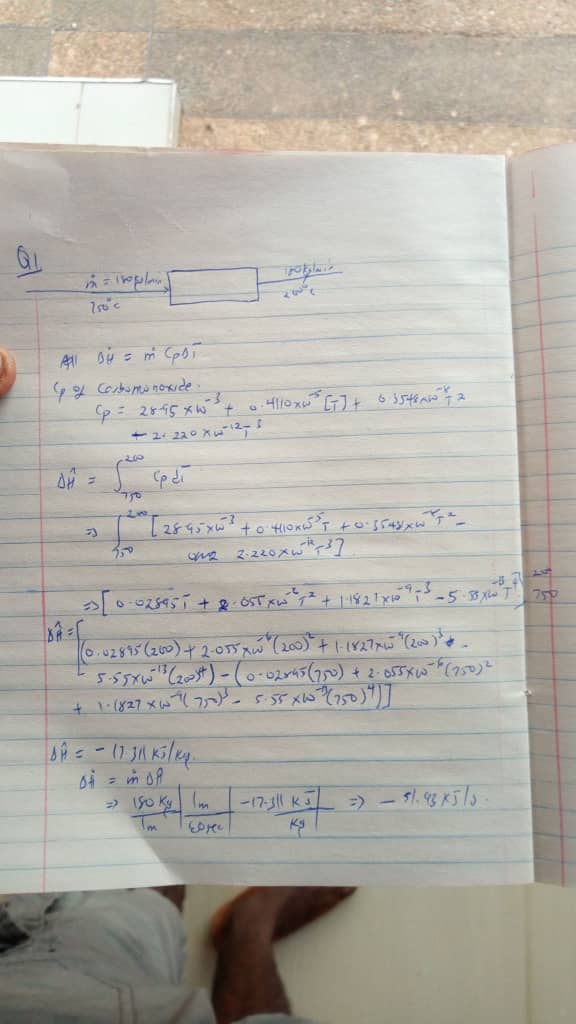 Q1
ṁ = 180kg/min 180kg/min
750°c 200°c
ΔḢ = ṁ CpΔT
Cp of Carbomonoxide.
Cp = 28.95 x10⁻³ + 0.4110x10⁻⁵ [T] + 0.3548x10⁻⁸ T²
- 2.220 x10⁻¹²T³
ΔĤ = ∫₇₅₀²⁰⁰ Cp dT
=> ∫₇₅₀²⁰⁰ [28.95x10⁻³ + 0.4110x10⁻⁵T + 0.3548x10⁻⁸T² -
2.220x10⁻¹²T³]
=> [0.02895T + 2.055x10⁻⁶T² + 1.1827x10⁻⁹T³ - 5.55x10⁻¹³T⁴]₇₅₀²⁰⁰
ΔĤ = [(0.02895(200) + 2.055x10⁻⁶(200)² + 1.1827x10⁻⁹(200)³ -
5.55x10⁻¹³(200)⁴) - (0.02895(750) + 2.055x10⁻⁶(750)²
+ 1.1827x10⁻⁹(750)³ - 5.55x10⁻¹³(750)⁴)]
ΔĤ = -17.311 kJ/kg.
ΔḢ = ṁ ΔĤ
=> 180 kg | 1m | -17.311 kJ => - 51.93 kJ/s.
1m | 60sec | kg